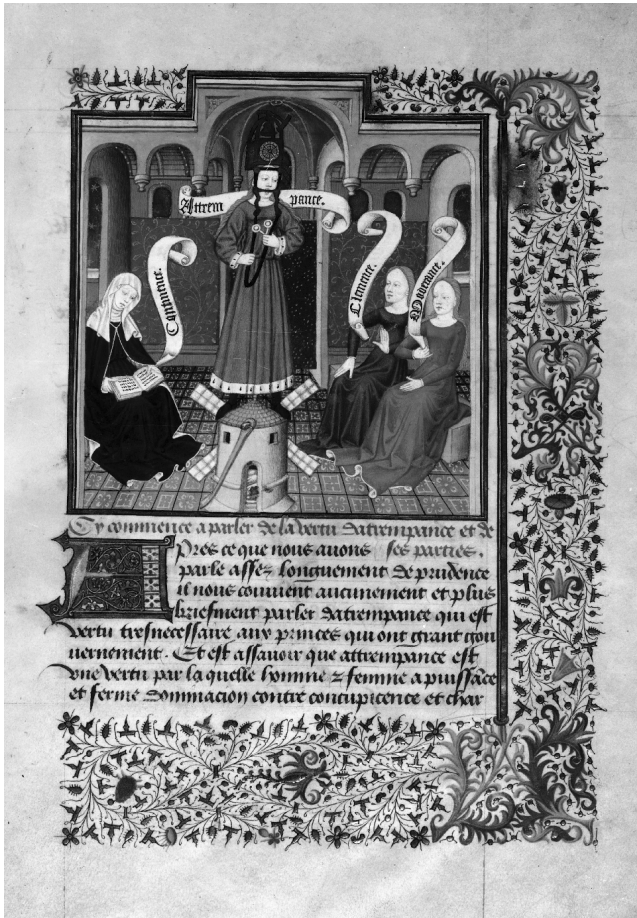 Attrem pance.
Continence.
Clemence.
Moderance.
Cy commence a parler de la vertu datrempance et de
ses parties.
Apres ce que nous auons
parle assez longuement de prudence
il nous conuient aucunement et plus
briefment parler datrempance qui est
vertu tresnecessaire aux princes qui ont grant gou
uernement. Et est assauoir que attrempance est
vne vertu par la quelle homme & femme a puissāce
et ferme dominacion contre concupicence et char